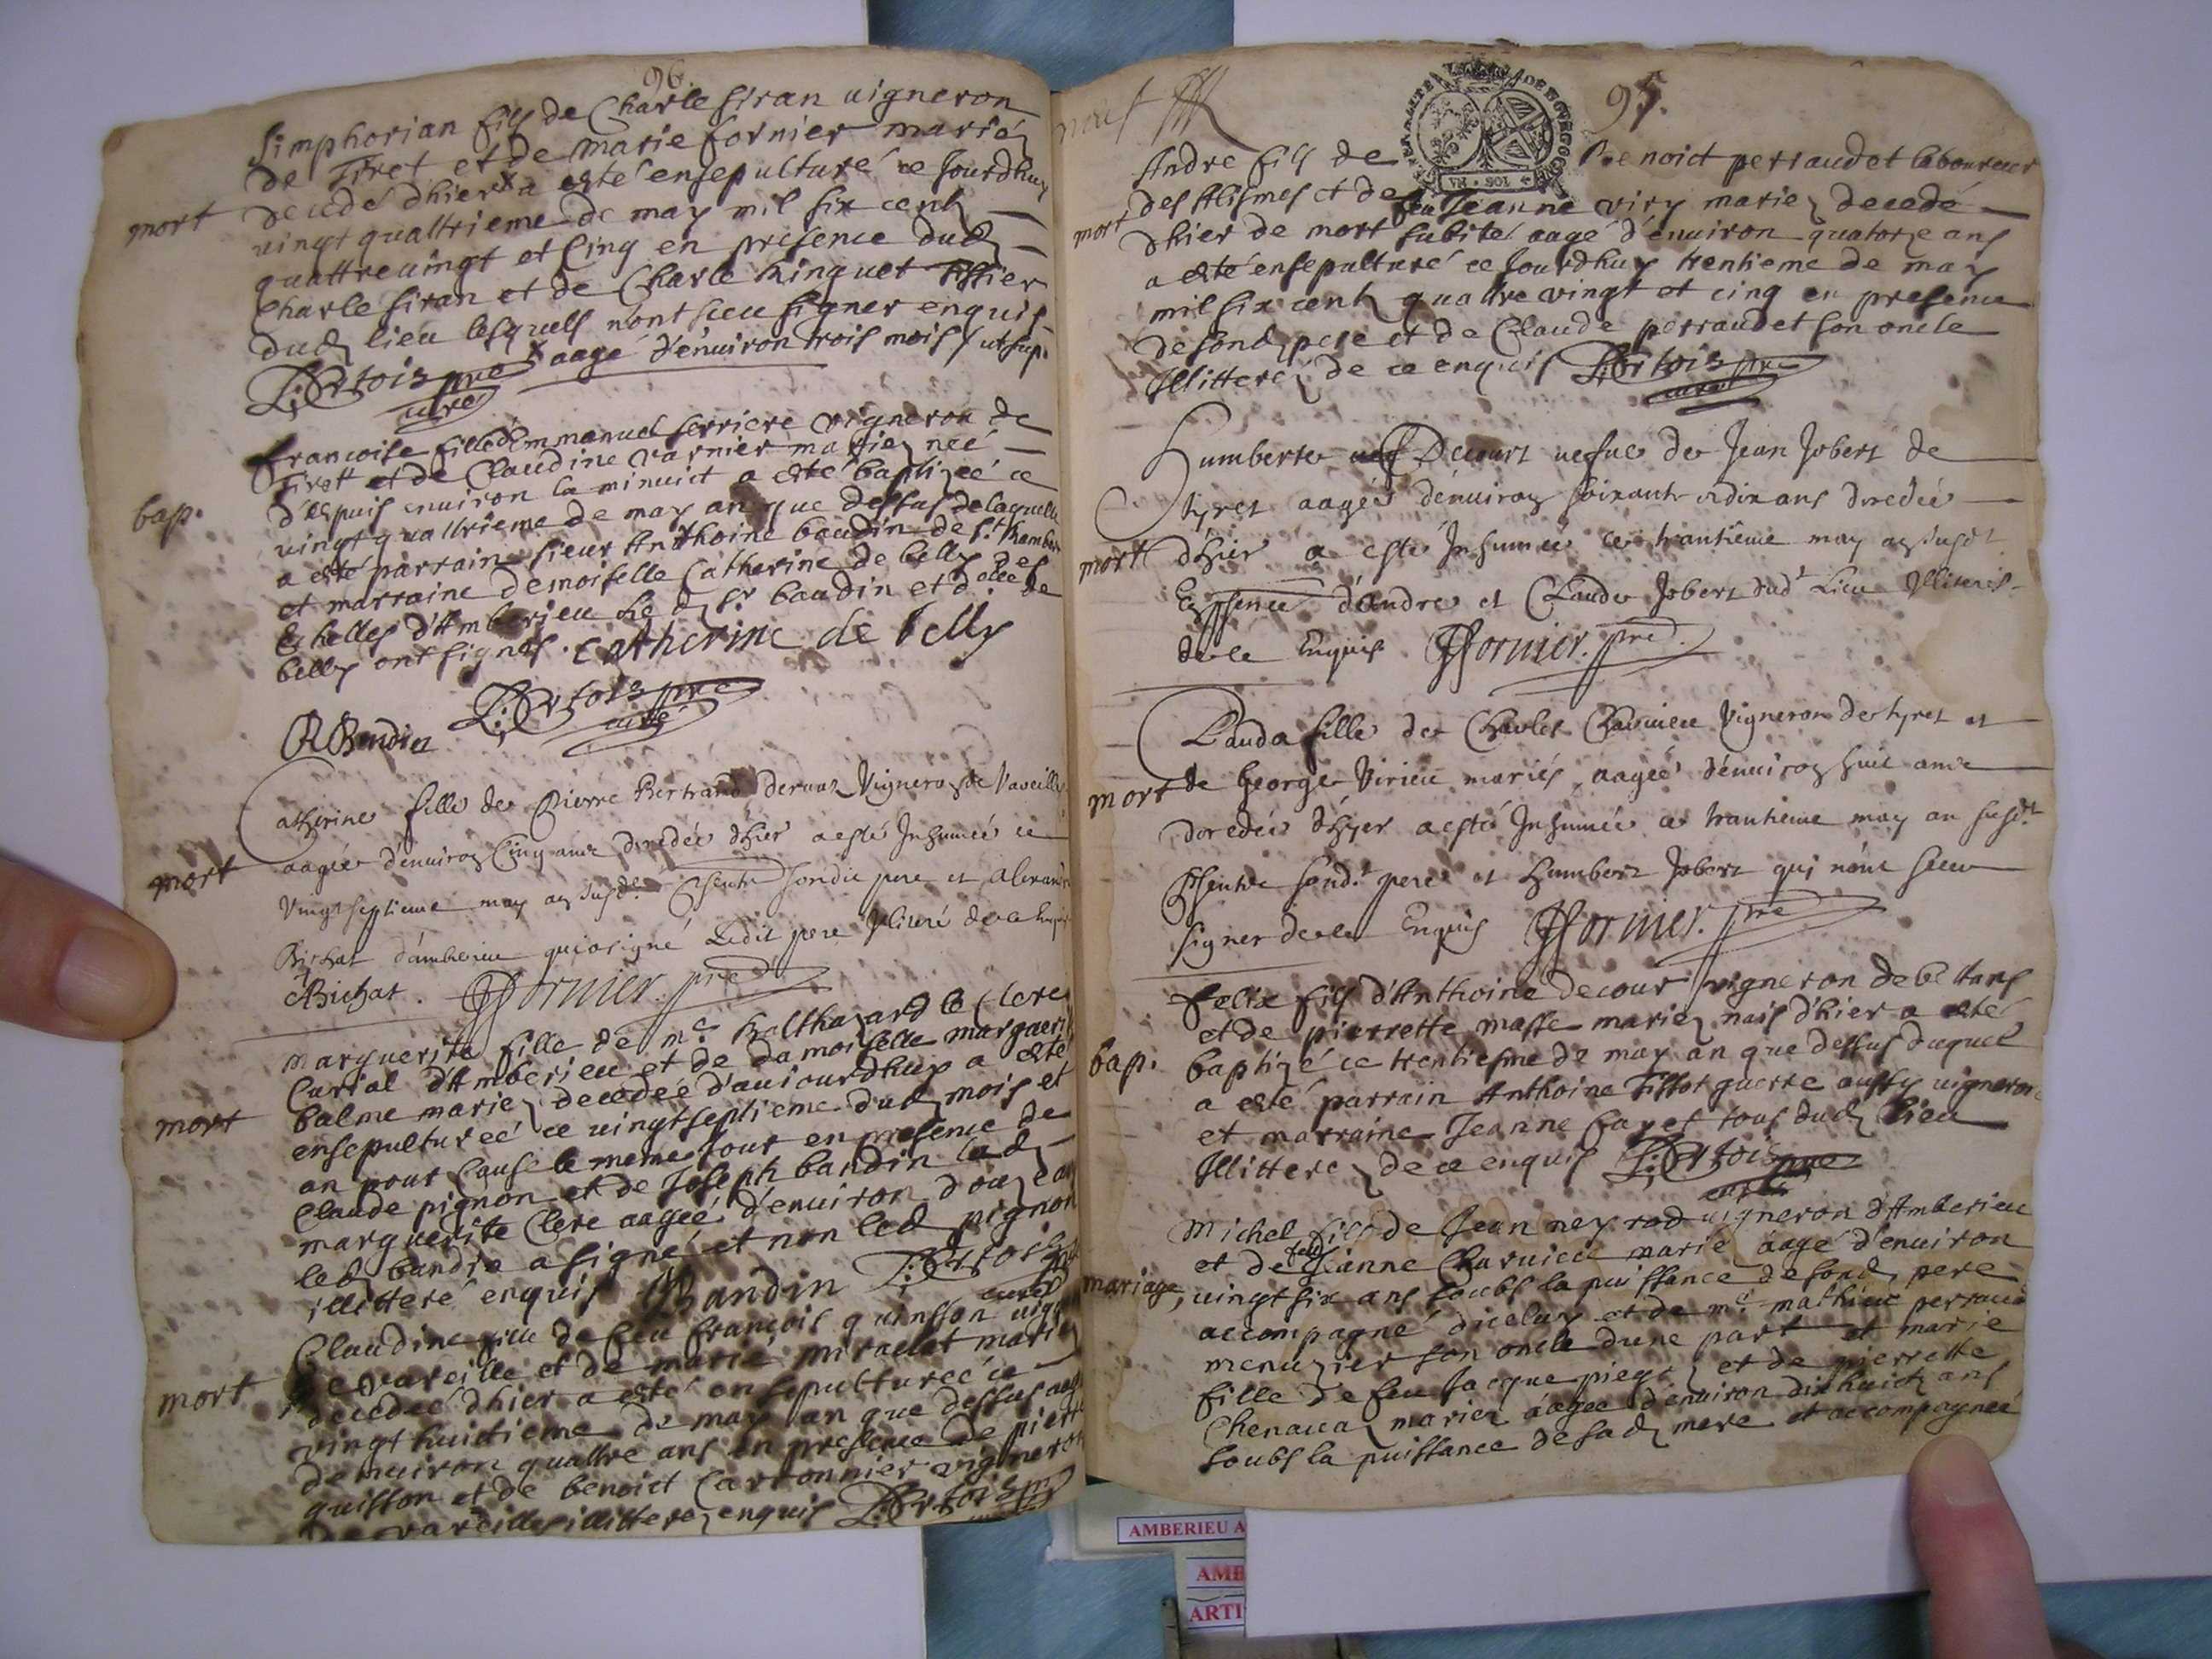 96.
Simphorian fils de Charle siran uigneron
de Tiret et de marie fornier mariez
decedé dhier x a esté ensepulturé ce Jourdhuy
mort
uingt quattrieme de may mil six centz
quattreuingt et cinq en presence dud
Charle siran et de Charle Ringuet tissier
dud lieu lesquels nont sceu signer enquis
x aagé d'enuiron trois mois / ut sup.
pre
curé
francoise fille d'Emmanuel ferriere vigneron de
Tiret et de Claudine varnier mariez neé
d'espuis enuiron la minuict a esté baptizeé ce
bap.
uingt quattrieme de may an que dessus de laquelle
a esté parrain sieur Anthoine baudin de St Rambert
et marraine demoiselle Catherine de belly des
Eschelles d'Amberieu led Sr baudin et de
belly ont signes. Catherine de belly
pre
curé
Baudin
Catherine fille de Pierre Bertrand Vigneron de Vareille
aagée denuiron Cinq ans decedée dhier a esté Inhumée ce
mort
Vingt septieme may an susd. sondit pere et Alexandre
Bichat d'amberieu qui a signé Ledit pere Illiteré de ce Enquis
Bichat. Fornier. pre
marguerite fille de me Balthazard le Clere
Curial d'Amberieu et de damoiselle marguerite
balme mariez decedeé d'auiourdhuy a esté
mort
ensepultureé ce uingt septieme dud mois et
an pour Cause le meme Jour en presence de
Claude pignon et de Joseph baudin lad
marguerite Clere aageé d'enuiron douze ans
led baudin a signé et non led pignon
illitteré enquis Baudin
curé
Claudine fille de feu francois quinsson uigneron
de vareille et de marie miraclet mariez
mort
decedeé dhier a esté ensepultureé ce
vingt huictieme de may an que dessus aageé
denuiron quattre ans en presence de pierre
quisson et de benoict Cartonnier vigneron
de vareilles illitterez enquis
mort
95.
Andre fils de Benoict perraudet laboureur
des Alismes et de feu Jeanne viry mariez decedé
mort
dhier de mort subite aagé d'enuiron quatorze ans
a esté ensepulturé ce Jourdhuy trentieme de may
mil six centz quattre vingt et cinq en presence
de sond pere et de Claude perraudet son oncle
Illitterez de ce enquis pre
curé
Humberte Decourt uefue de Jean Jobert de
tyret aagée denuiron soixante et dix ans decedée
mort
dhier a esté Inhumée ce trantieme may an susdt
En psence d'andre et Claude Jobert dudt Lieu Illiterés
de ce Enquis Fornier. pre
Clauda fille de Charles Charuieu Vigneron de tyret et
mort
de George Virieu mariés aagée denuiron huit ans
decedée d'hyer a esté Inhumée ce trantieme may an susdt
sondt pere et Humbert Jobert qui n'ont sceu
signer de ce Enquis Fornier. pre
felix fils d'Anthoine decour vigneron de bettans
et de pierrette masse mariez nais d'hier a esté
bap.
baptizé ce trentiesme de may an que dessus duquel
a esté parrain Anthoine Tissot guerre aussy uigneron
et marraine Jeanne Cayet tous dud lieu
Illitterez de ce enquis pre
curé
michel fils de Jean ney uigneron d'Amberieu
et de feu Jeanne Charuieu marié aagé d'enuiron
mariage,
uingt six ans soubs la puissance de sond pere
accompagné diceluy et de me mathieu perraud
menuzier son oncle dune part et marie
fille de feu Jacque et de pierrette
Chenauaz mariez aageé d'enuiron dix huict ans
soubs la puissance de sad mere et accompagneé
AMBERIEU